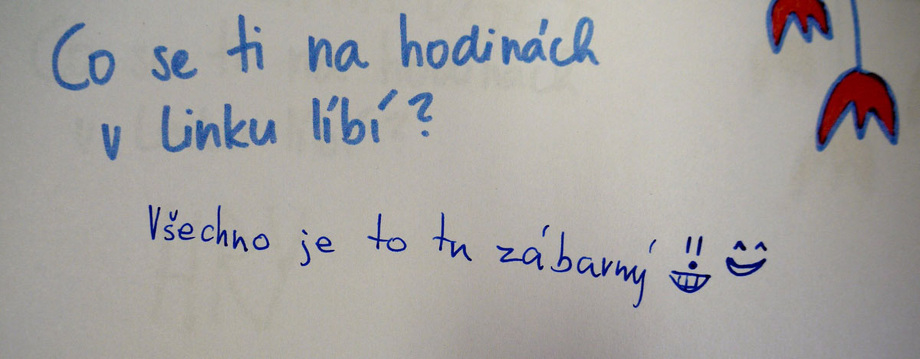 Co se ti na hodinách
v Linku líbí?
Všechno je to tu zábavný